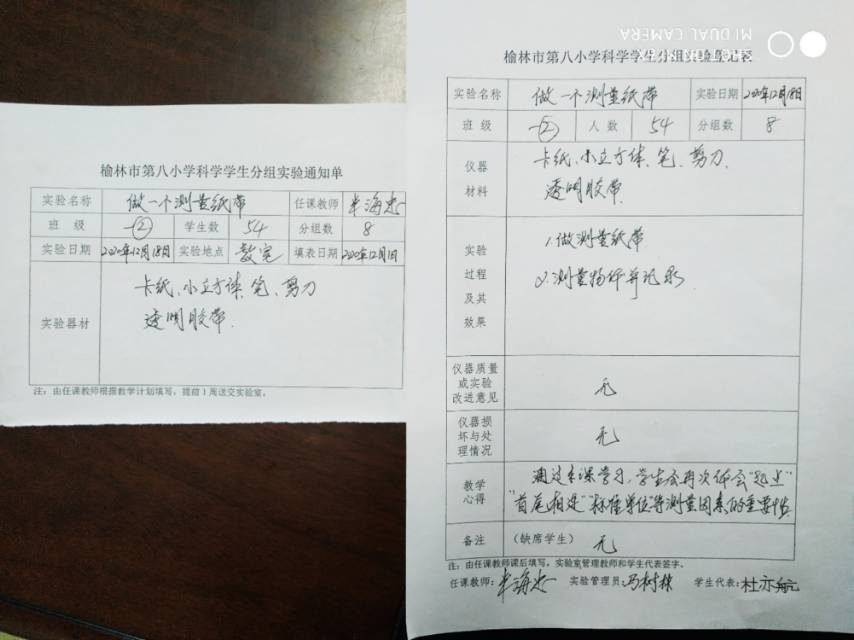 榆林市第八小学科学学生分组实验通知单
实验名称 做一个测量纸带 任课教师
班 级 一(2) 学生数 54 分组数 8
实验日期 2020年12月18日 实验地点 教室 填表日期 2020年12月1日
实验器材 卡纸、小立方体、笔、剪刀
透明胶带.
注：由任课教师根据教学计划填写，提前1周送交实验室。
MI DUAL CAMERA
榆林市第八小学科学学生分组实验登记表
实验名称 做一个测量纸带 实验日期 2020年12月18日
班 级 一(2) 人 数 54 分组数 8
仪器
材料
卡纸、小立方体、笔、剪刀、
透明胶带.
实验
过程
及其
效果
1.做测量纸带
2.测量物体并记录
仪器质量
或实验
改进意见
无
仪器损
坏与处
理情况
无
教学
心得
通过本课学习，学生会再次体会"起点"
"首尾相连""标准单位"等测量因素的重要性.
备注 (缺席学生) 无
注：由任课教师课后填写，实验室管理教师和学生代表签字。
任课教师: 实验管理员:冯树林 学生代表:杜亦航